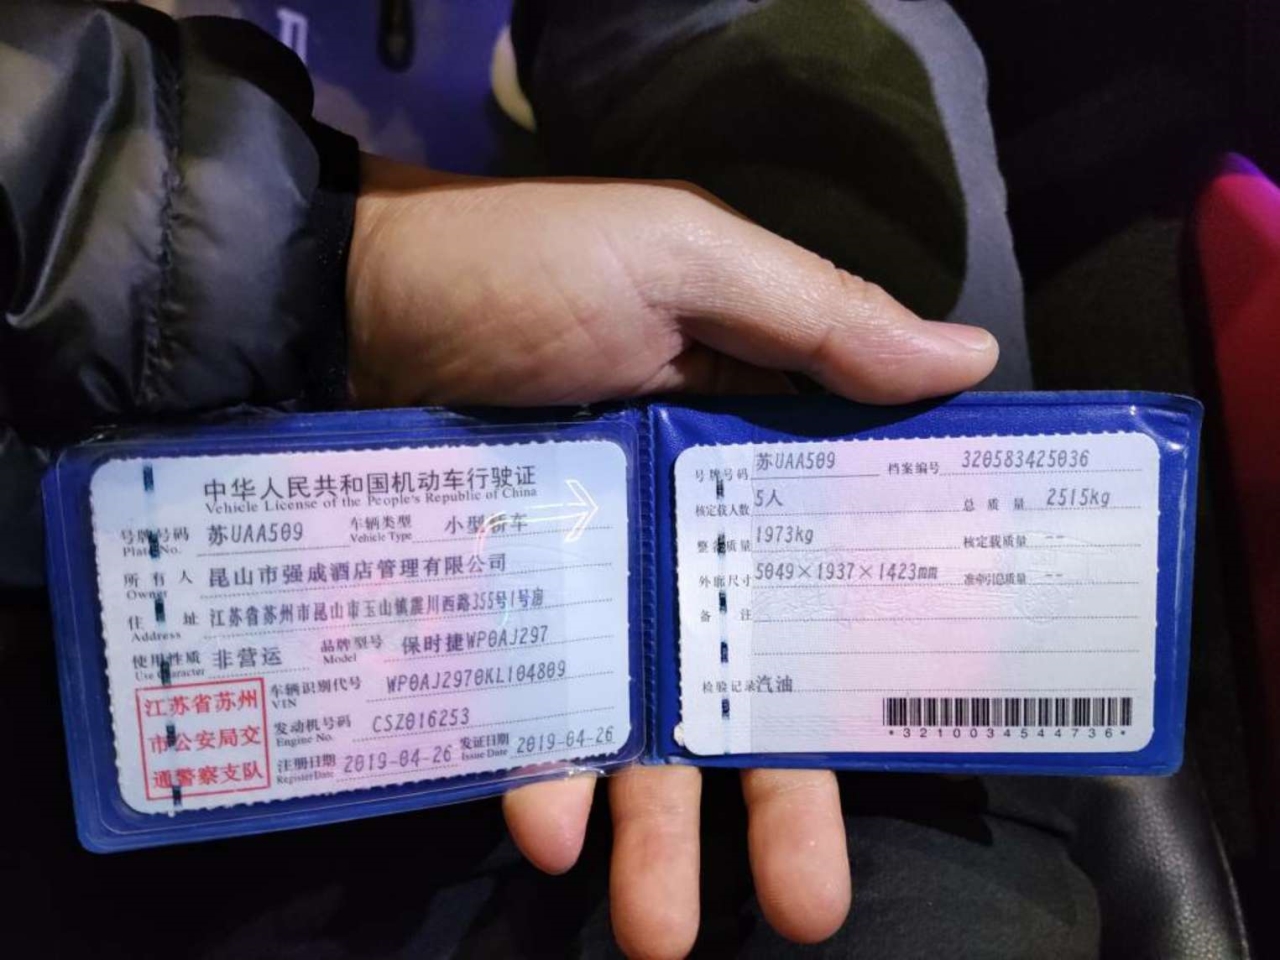 中华人民共和国机动车行驶证
Vehicle License of the People's Republic of China
号牌号码 苏UAA509 车辆类型 小型轿车
Plate No. Vehicle Type
所有人 昆山市强成酒店管理有限公司
Owner
住址 江苏省苏州市昆山市玉山镇震川西路355号1号房
Address
使用性质 非营运 品牌型号 保时捷WP0AJ297
Use Character Model
江苏省苏州
市公安局交
通警察支队
车辆识别代号 WP0AJ2970KL104809
VIN
发动机号码 CSZ016253
Engine No.
注册日期 2019-04-26 发证日期 2019-04-26
Register Date Issue Date
号牌号码 苏UAA509 档案编号 320583425036
核定载人数 5人 总质量 2515kg
整备质量 1973kg 核定载质量 --
外廓尺寸 5049×1937×1423mm 准牵引总质量 --
备注
检验记录 汽油
*3210034544736*